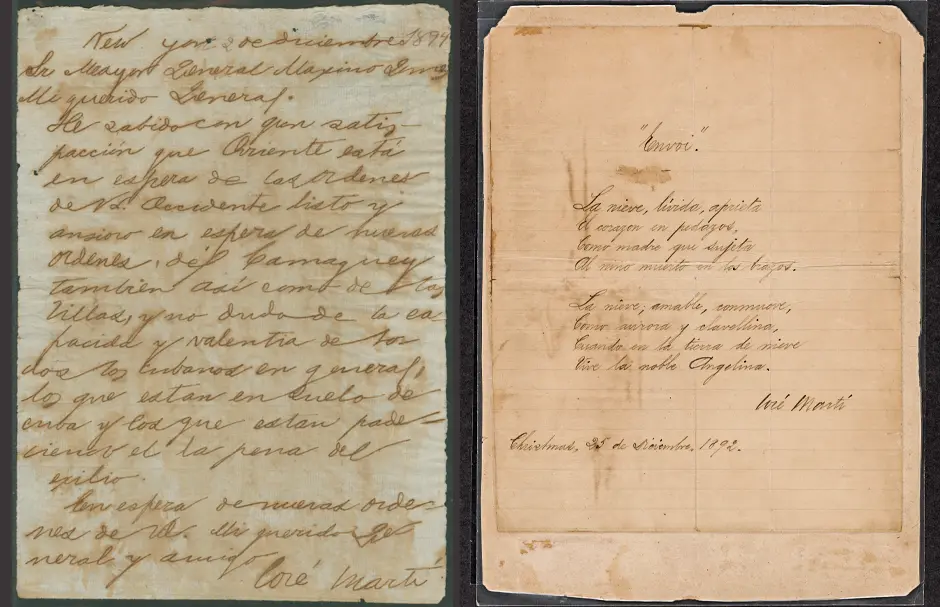 New yor 2 de diciembre 1894
Sr Mayor General Maximo Gomez
Mi querido General.
He sabido con gran satis-
facción que Oriente está
en espera de las ordenes
de V. Occidente listo y
ansioso en espera de nuevas
ordenes, de Camaguey
también así como de las
Villas, y no dudo de la ca-
pacida y valentia de to-
dos los cubanos en general,
los que estan en suelo de
cuba y los que estan pade-
ciendo el la pena del
exilio.
En espera de nuevas orde-
nes de Vd. Mi querido Ge
neral y amigo
José Martí
"Envoi".
La nieve, lívida, aprieta
El corazon en pedazos,
Como madre que sujeta
Al niño muerto en los brazos.
La nieve, amable, conmueve,
Como aurora y clavellina,
Cuando en la tierra de nieve
Vive la noble Angelina.
José Martí
Christmas, 25 de Diciembre, 1892.